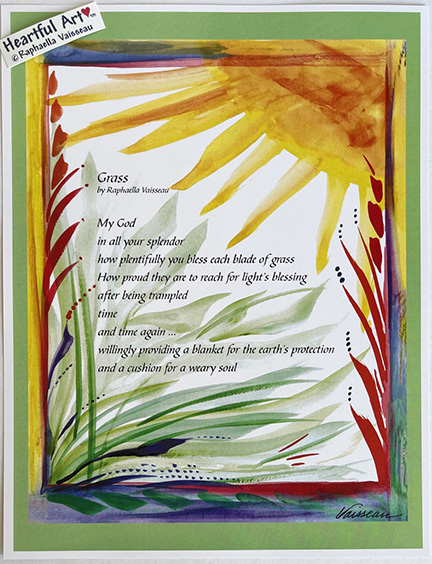 Heartful Art™
© Raphaella Vaisseau
Grass
by Raphaella Vaisseau
My God
in all your splendor
how plentifully you bless each blade of grass
How proud they are to reach for light's blessing
after being trampled
time
and time again ...
willingly providing a blanket for the earth's protection
and a cushion for a weary soul
Vaisseau